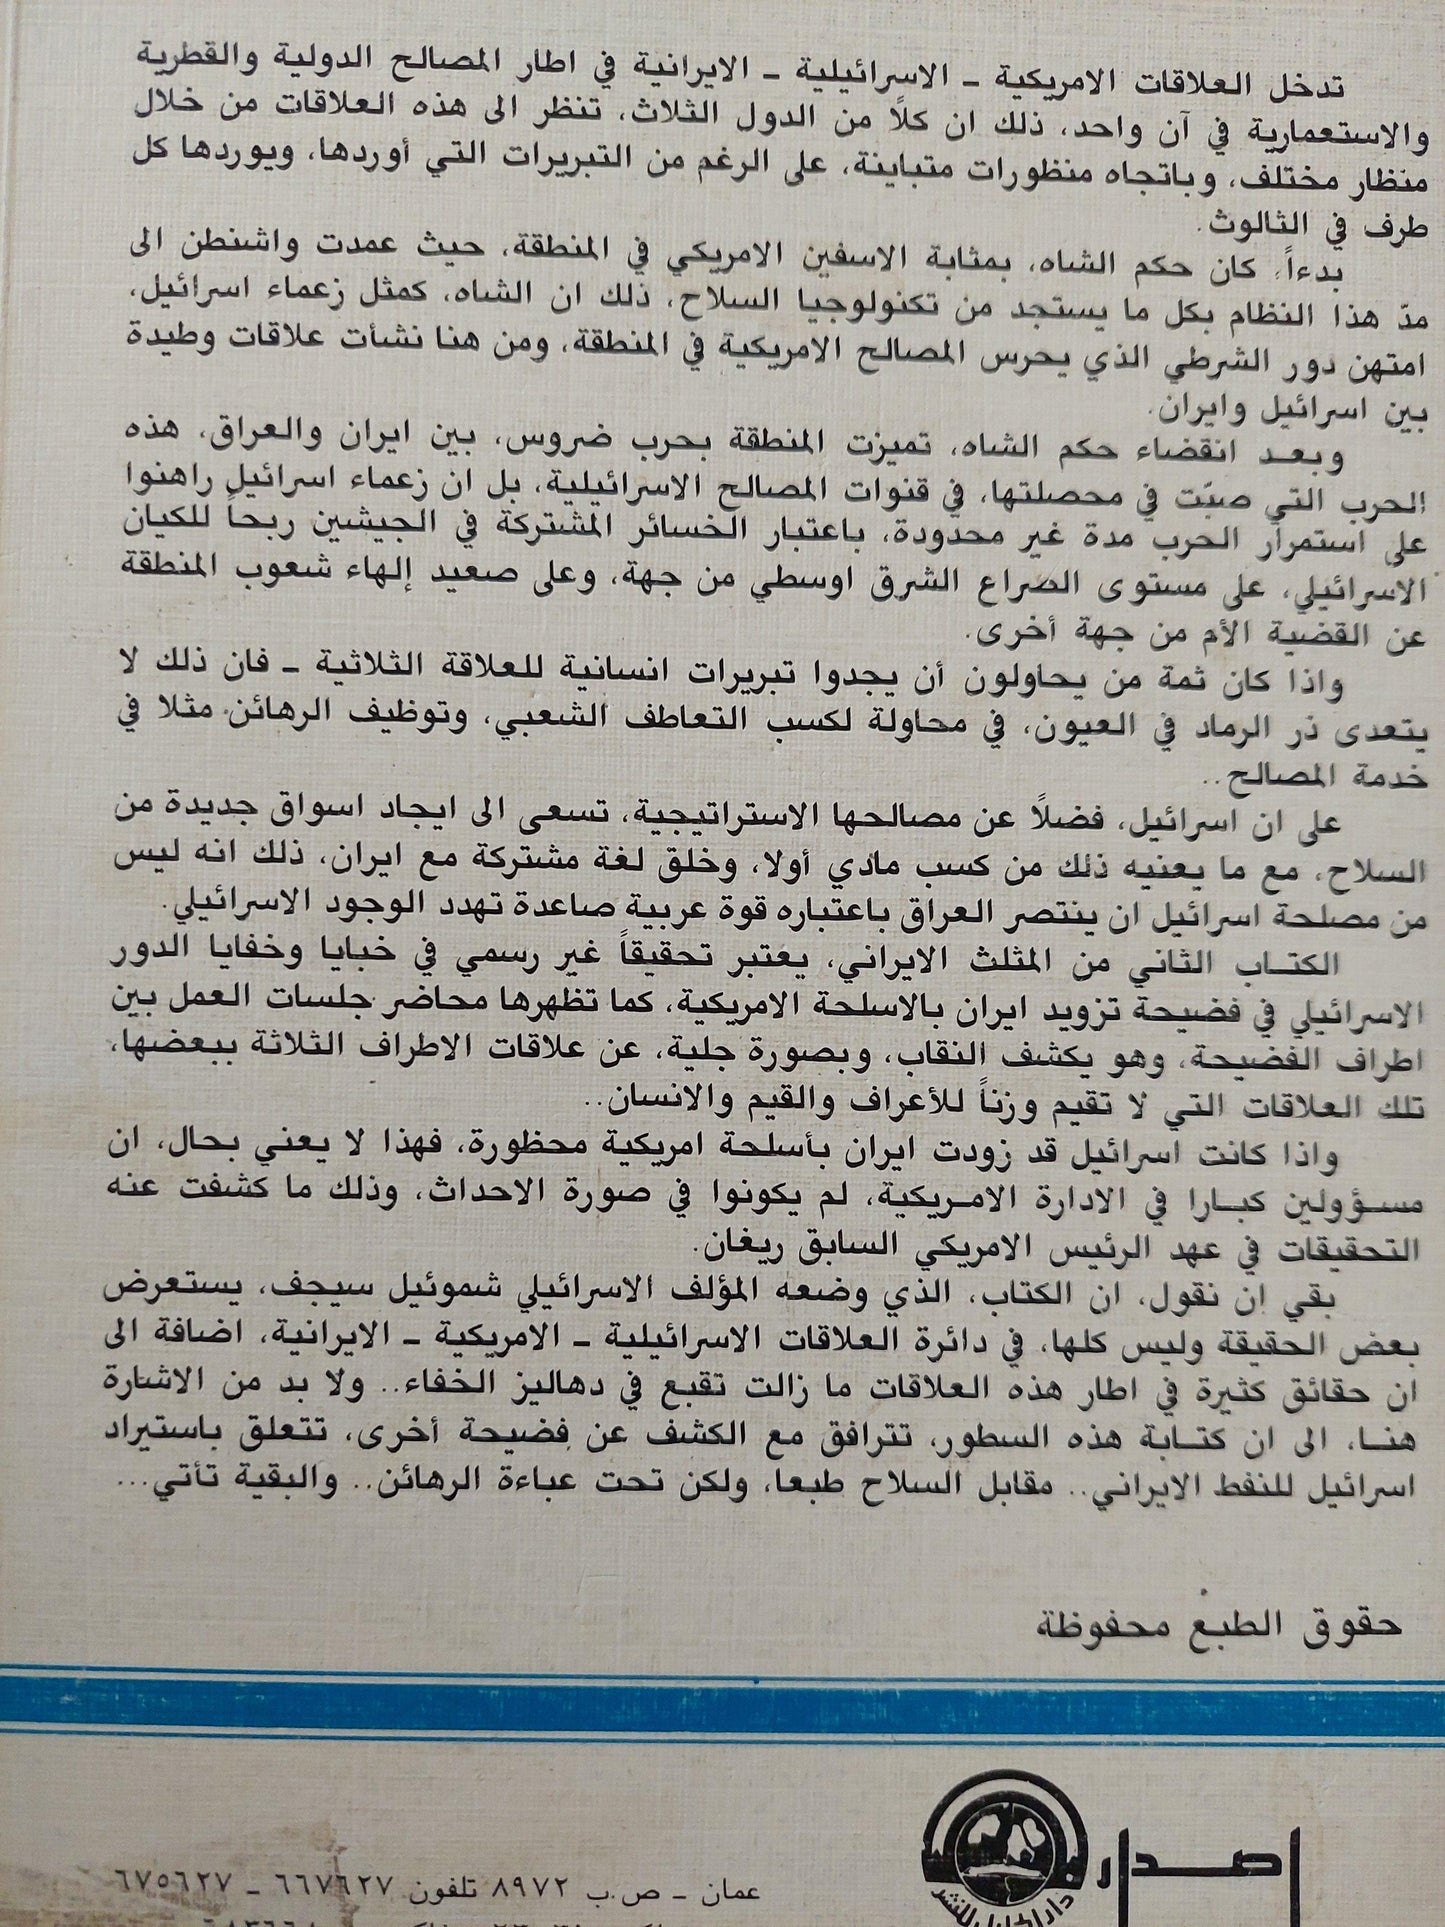 تدخل العلاقات الامريكية ـ الاسرائيلية ـ الايرانية في اطار المصالح الدولية والقطرية
والاستعمارية في آن واحد، ذلك ان كلًا من الدول الثلاث، تنظر الى هذه العلاقات من خلال
منظار مختلف، وباتجاه منظورات متباينة، على الرغم من التبريرات التي أوردها، ويوردها كل
طرف في الثالوث.
بدءاً، كان حكم الشاه، بمثابة الاسفين الامريكي في المنطقة، حيث عمدت واشنطن الى
مدّ هذا النظام بكل ما يستجد من تكنولوجيا السلاح، ذلك ان الشاه، كمثل زعماء اسرائيل،
امتهن دور الشرطي الذي يحرس المصالح الامريكية في المنطقة، ومن هنا نشأت علاقات وطيدة
بين اسرائيل وايران.
وبعد انقضاء حكم الشاه، تميزت المنطقة بحرب ضروس، بين ايران والعراق، هذه
الحرب التي صبّت في محصلتها، في قنوات المصالح الاسرائيلية، بل ان زعماء اسرائيل راهنوا
على استمرار الحرب مدة غير محدودة، باعتبار الخسائر المشتركة في الجيشين ربحاً للكيان
الاسرائيلي، على مستوى الصراع الشرق اوسطي من جهة، وعلى صعيد إلهاء شعوب المنطقة
عن القضية الأم من جهة أخرى.
واذا كان ثمة من يحاولون أن يجدوا تبريرات انسانية للعلاقة الثلاثية ـ فان ذلك لا
يتعدى ذر الرماد في العيون، في محاولة لكسب التعاطف الشعبي، وتوظيف الرهائن مثلا في
خدمة المصالح..
على ان اسرائيل، فضلًا عن مصالحها الاستراتيجية، تسعى الى ايجاد اسواق جديدة من
السلاح، مع ما يعنيه ذلك من كسب مادي أولا، وخلق لغة مشتركة مع ايران، ذلك انه ليس
من مصلحة اسرائيل ان ينتصر العراق باعتباره قوة عربية صاعدة تهدد الوجود الاسرائيلي.
الكتاب الثاني من المثلث الايراني، يعتبر تحقيقاً غير رسمي في خبايا وخفايا الدور
الاسرائيلي في فضيحة تزويد ايران بالاسلحة الامريكية، كما تظهرها محاضر جلسات العمل بين
اطراف الفضيحة، وهو يكشف النقاب، وبصورة جلية، عن علاقات الاطراف الثلاثة ببعضها،
تلك العلاقات التي لا تقيم وزناً للأعراف والقيم والانسان..
واذا كانت اسرائيل قد زودت ايران بأسلحة امريكية محظورة، فهذا لا يعني بحال، ان
مسؤولين كبارا في الادارة الامريكية، لم يكونوا في صورة الاحداث، وذلك ما كشفت عنه
التحقيقات في عهد الرئيس الامريكي السابق ريغان.
بقي ان نقول، ان الكتاب، الذي وضعه المؤلف الاسرائيلي شموئيل سيجف، يستعرض
بعض الحقيقة وليس كلها، في دائرة العلاقات الاسرائيلية ـ الامريكية ـ الايرانية، اضافة الى
ان حقائق كثيرة في اطار هذه العلاقات ما زالت تقبع في دهاليز الخفاء.. ولا بد من الاشارة
هنا، الى ان كتابة هذه السطور، تترافق مع الكشف عن فضيحة أخرى، تتعلق باستيراد
اسرائيل للنفط الايراني.. مقابل السلاح طبعا، ولكن تحت عباءة الرهائن.. والبقية تأتي...
حقوق الطبع محفوظة
اصدار
دار الجليل للنشر
عمان ـ ص.ب ٨٩٧٢ تلفون ٦٦٧٦٢٧ ـ ٦٧٥٦٢٧